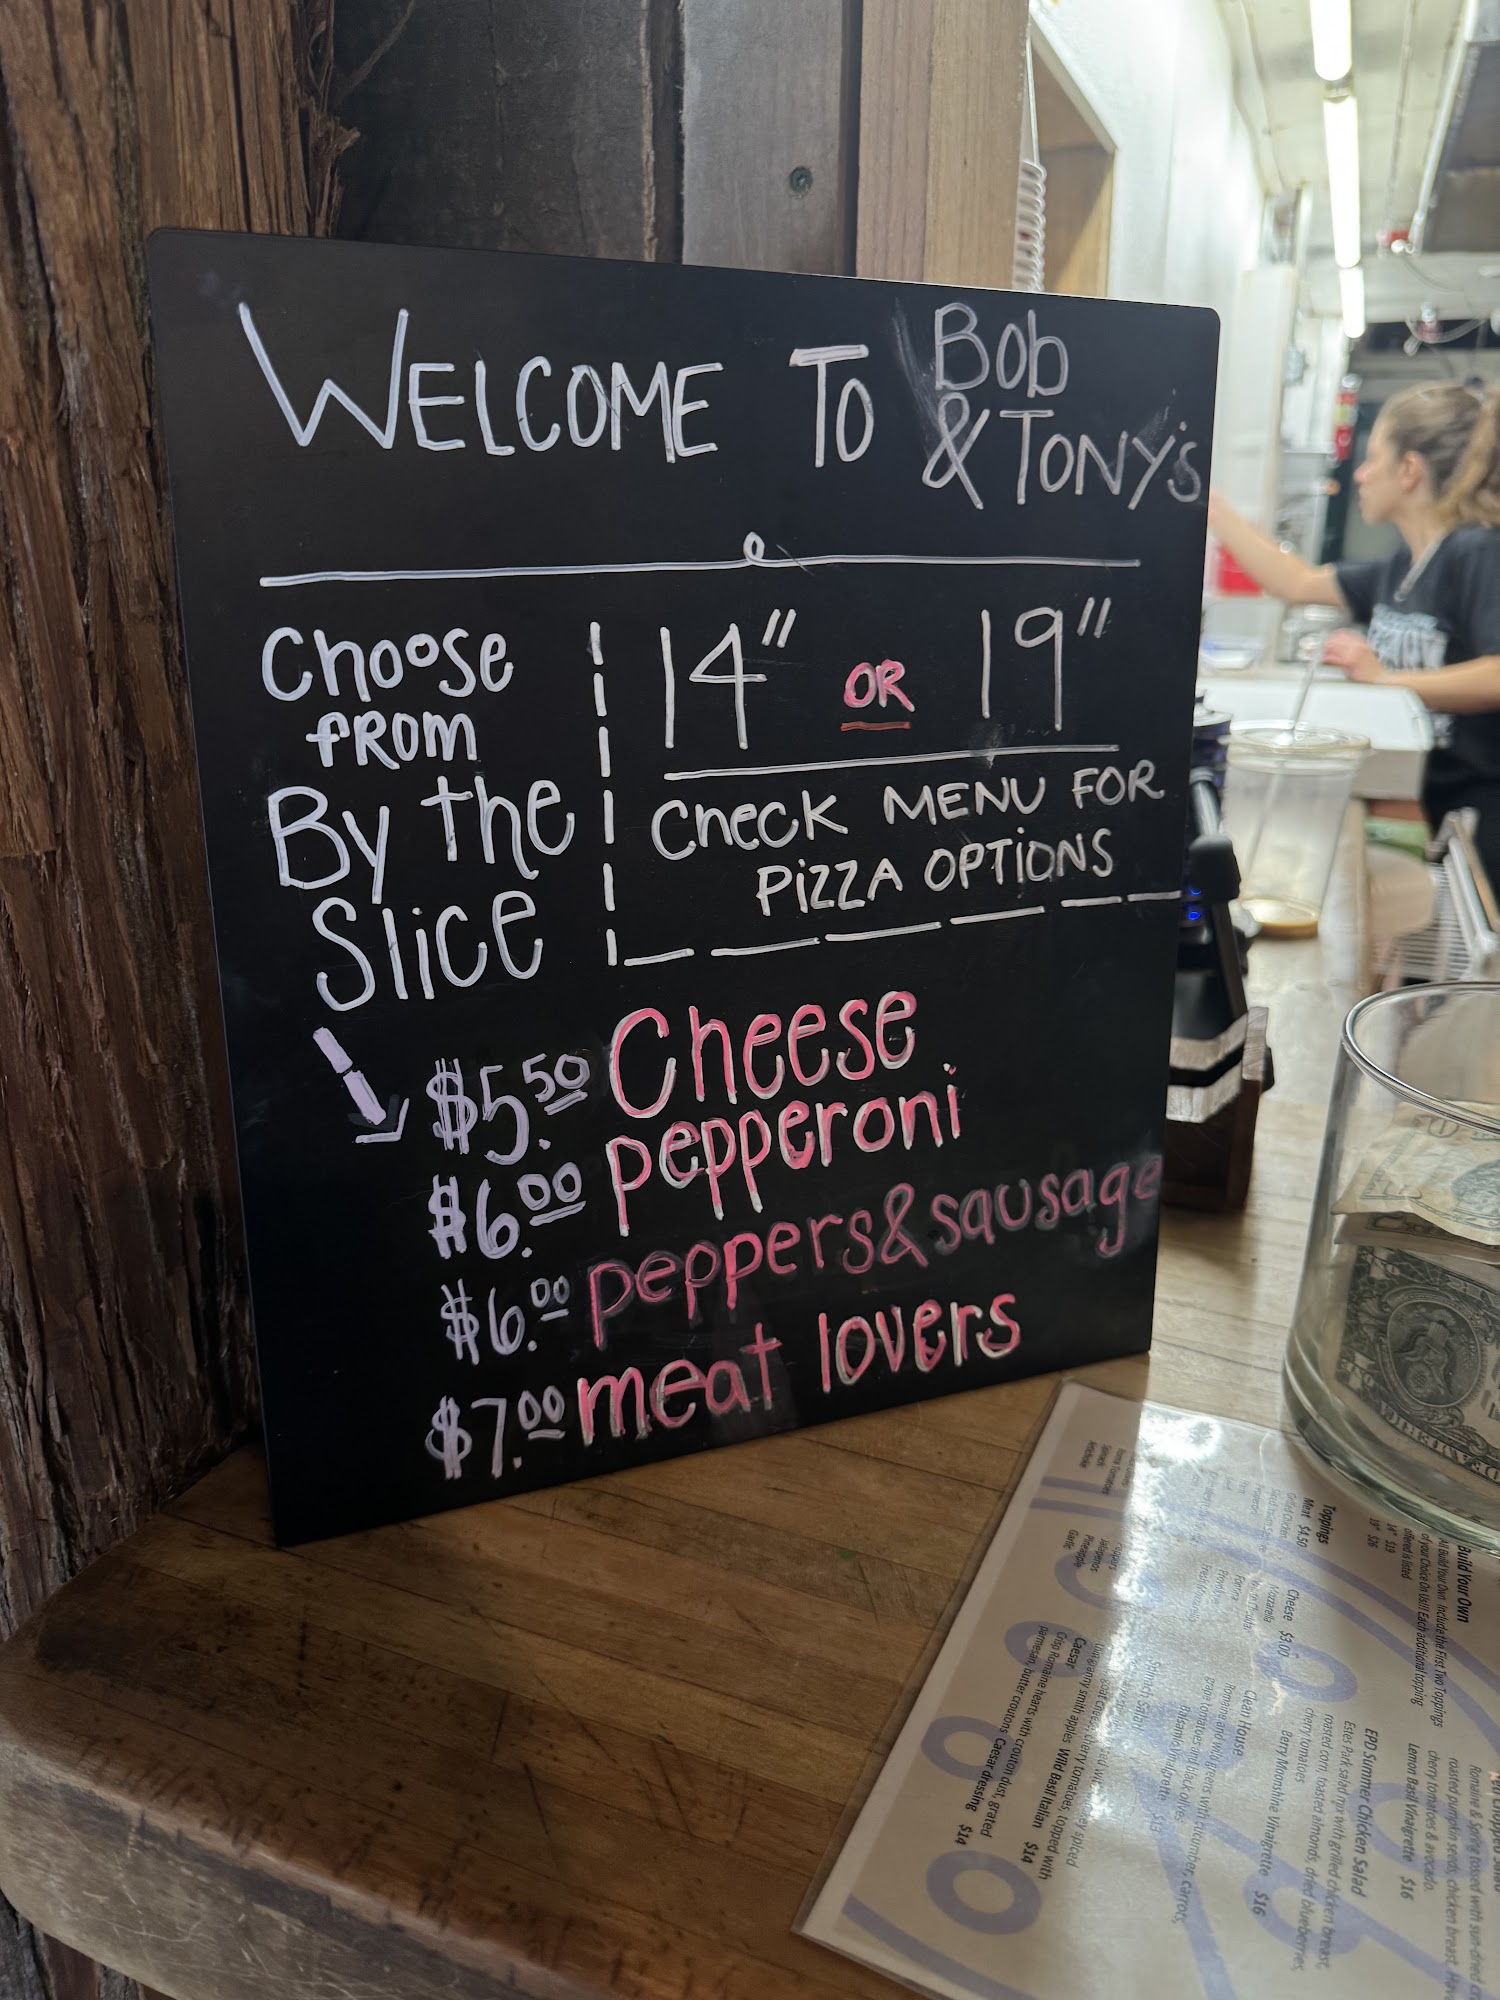 WELCOME TO Bob
& TONY'S
Choose
FROM
By the
Slice
14" OR 19"
Check MENU FOR
PIZZA OPTIONS
$5.50 Cheese
$6.00 pepperoni
$6.00 peppers&sausage
$7.00 meat lovers
Build Your Own
All Build Your Own Include the First Two Toppings
of your Choice On Us!! Each additional topping
offered is listed
14" $19
19" $26
Toppings
Meat $4.50
Cheese $3.00
Mozzarella
Spinach
Artichoke
Jalapenos
Pineapple
Garlic
roasted pumpkin seeds, chicken breast,
cherry tomatoes & avocado.
Lemon Basil Vinaigrette $16
EPD Summer Chicken Salad
Estes Park salad mix with grilled chicken breast,
roasted corn, toasted almonds, dried blueberries,
cherry tomatoes
Berry Moonshine Vinaigrette $16
Clean House
Romaine and wild greens with cucumber, carrots,
grape tomatoes and black olives
Balsamic Vinaigrette $13
Spinach Salad
Wild Basil Italian $14
Caesar
Crisp Romaine hearts with crouton dust, grated
parmesan, butter croutons Caesar dressing $14